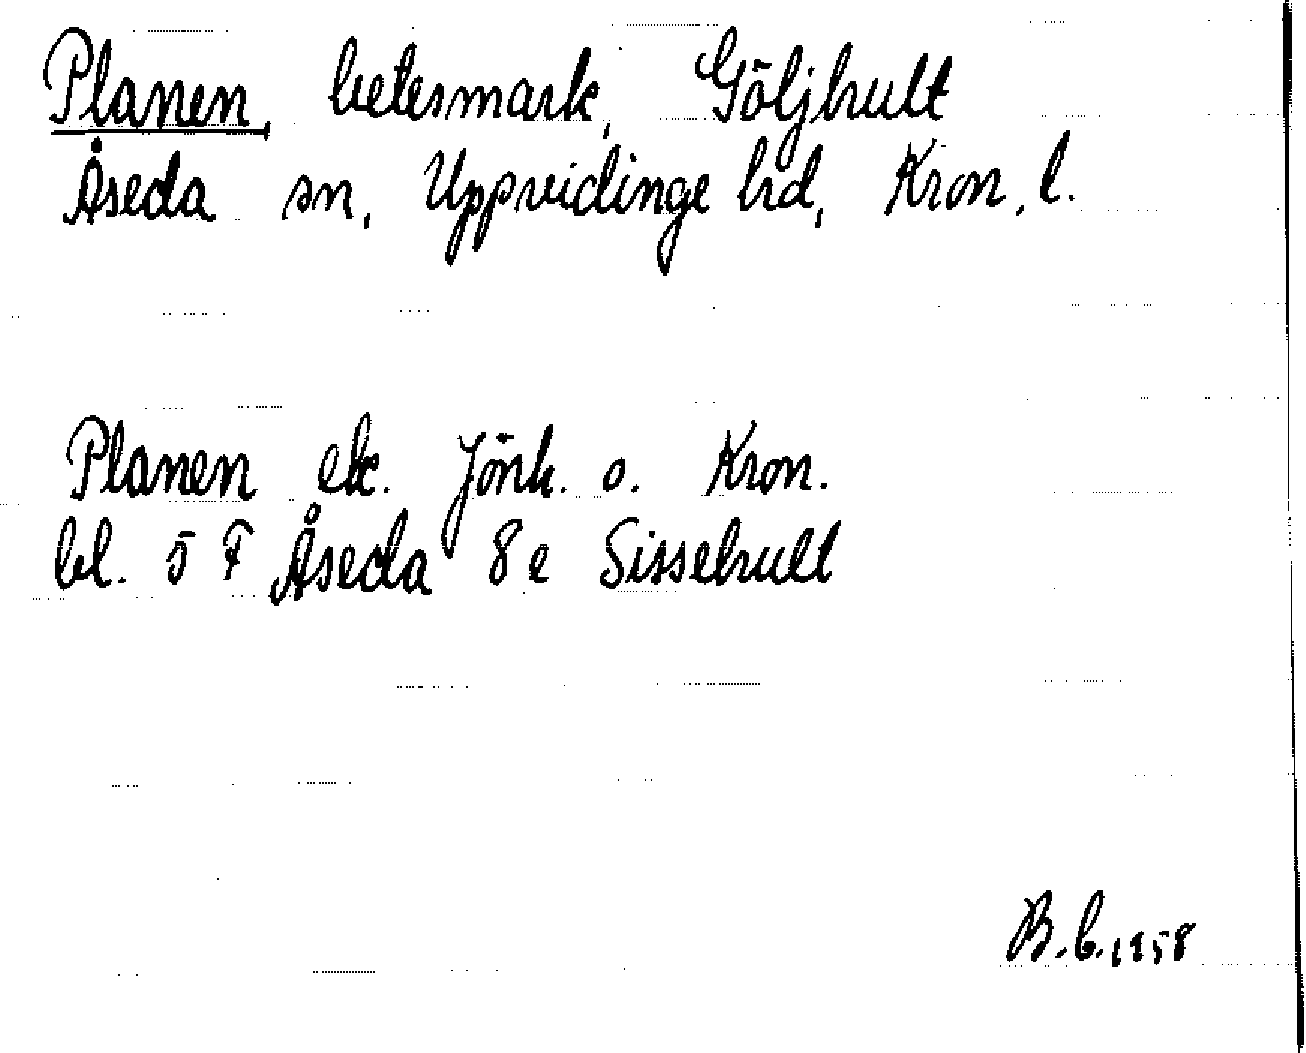 Planen, betesmark, Göljhult
Åseda sn, Uppvidinge hd, Kron. l.
Planen ek. Jönk. o. Kron.
bl. 5 F Åseda 8e Sissehult
B.C. 1958